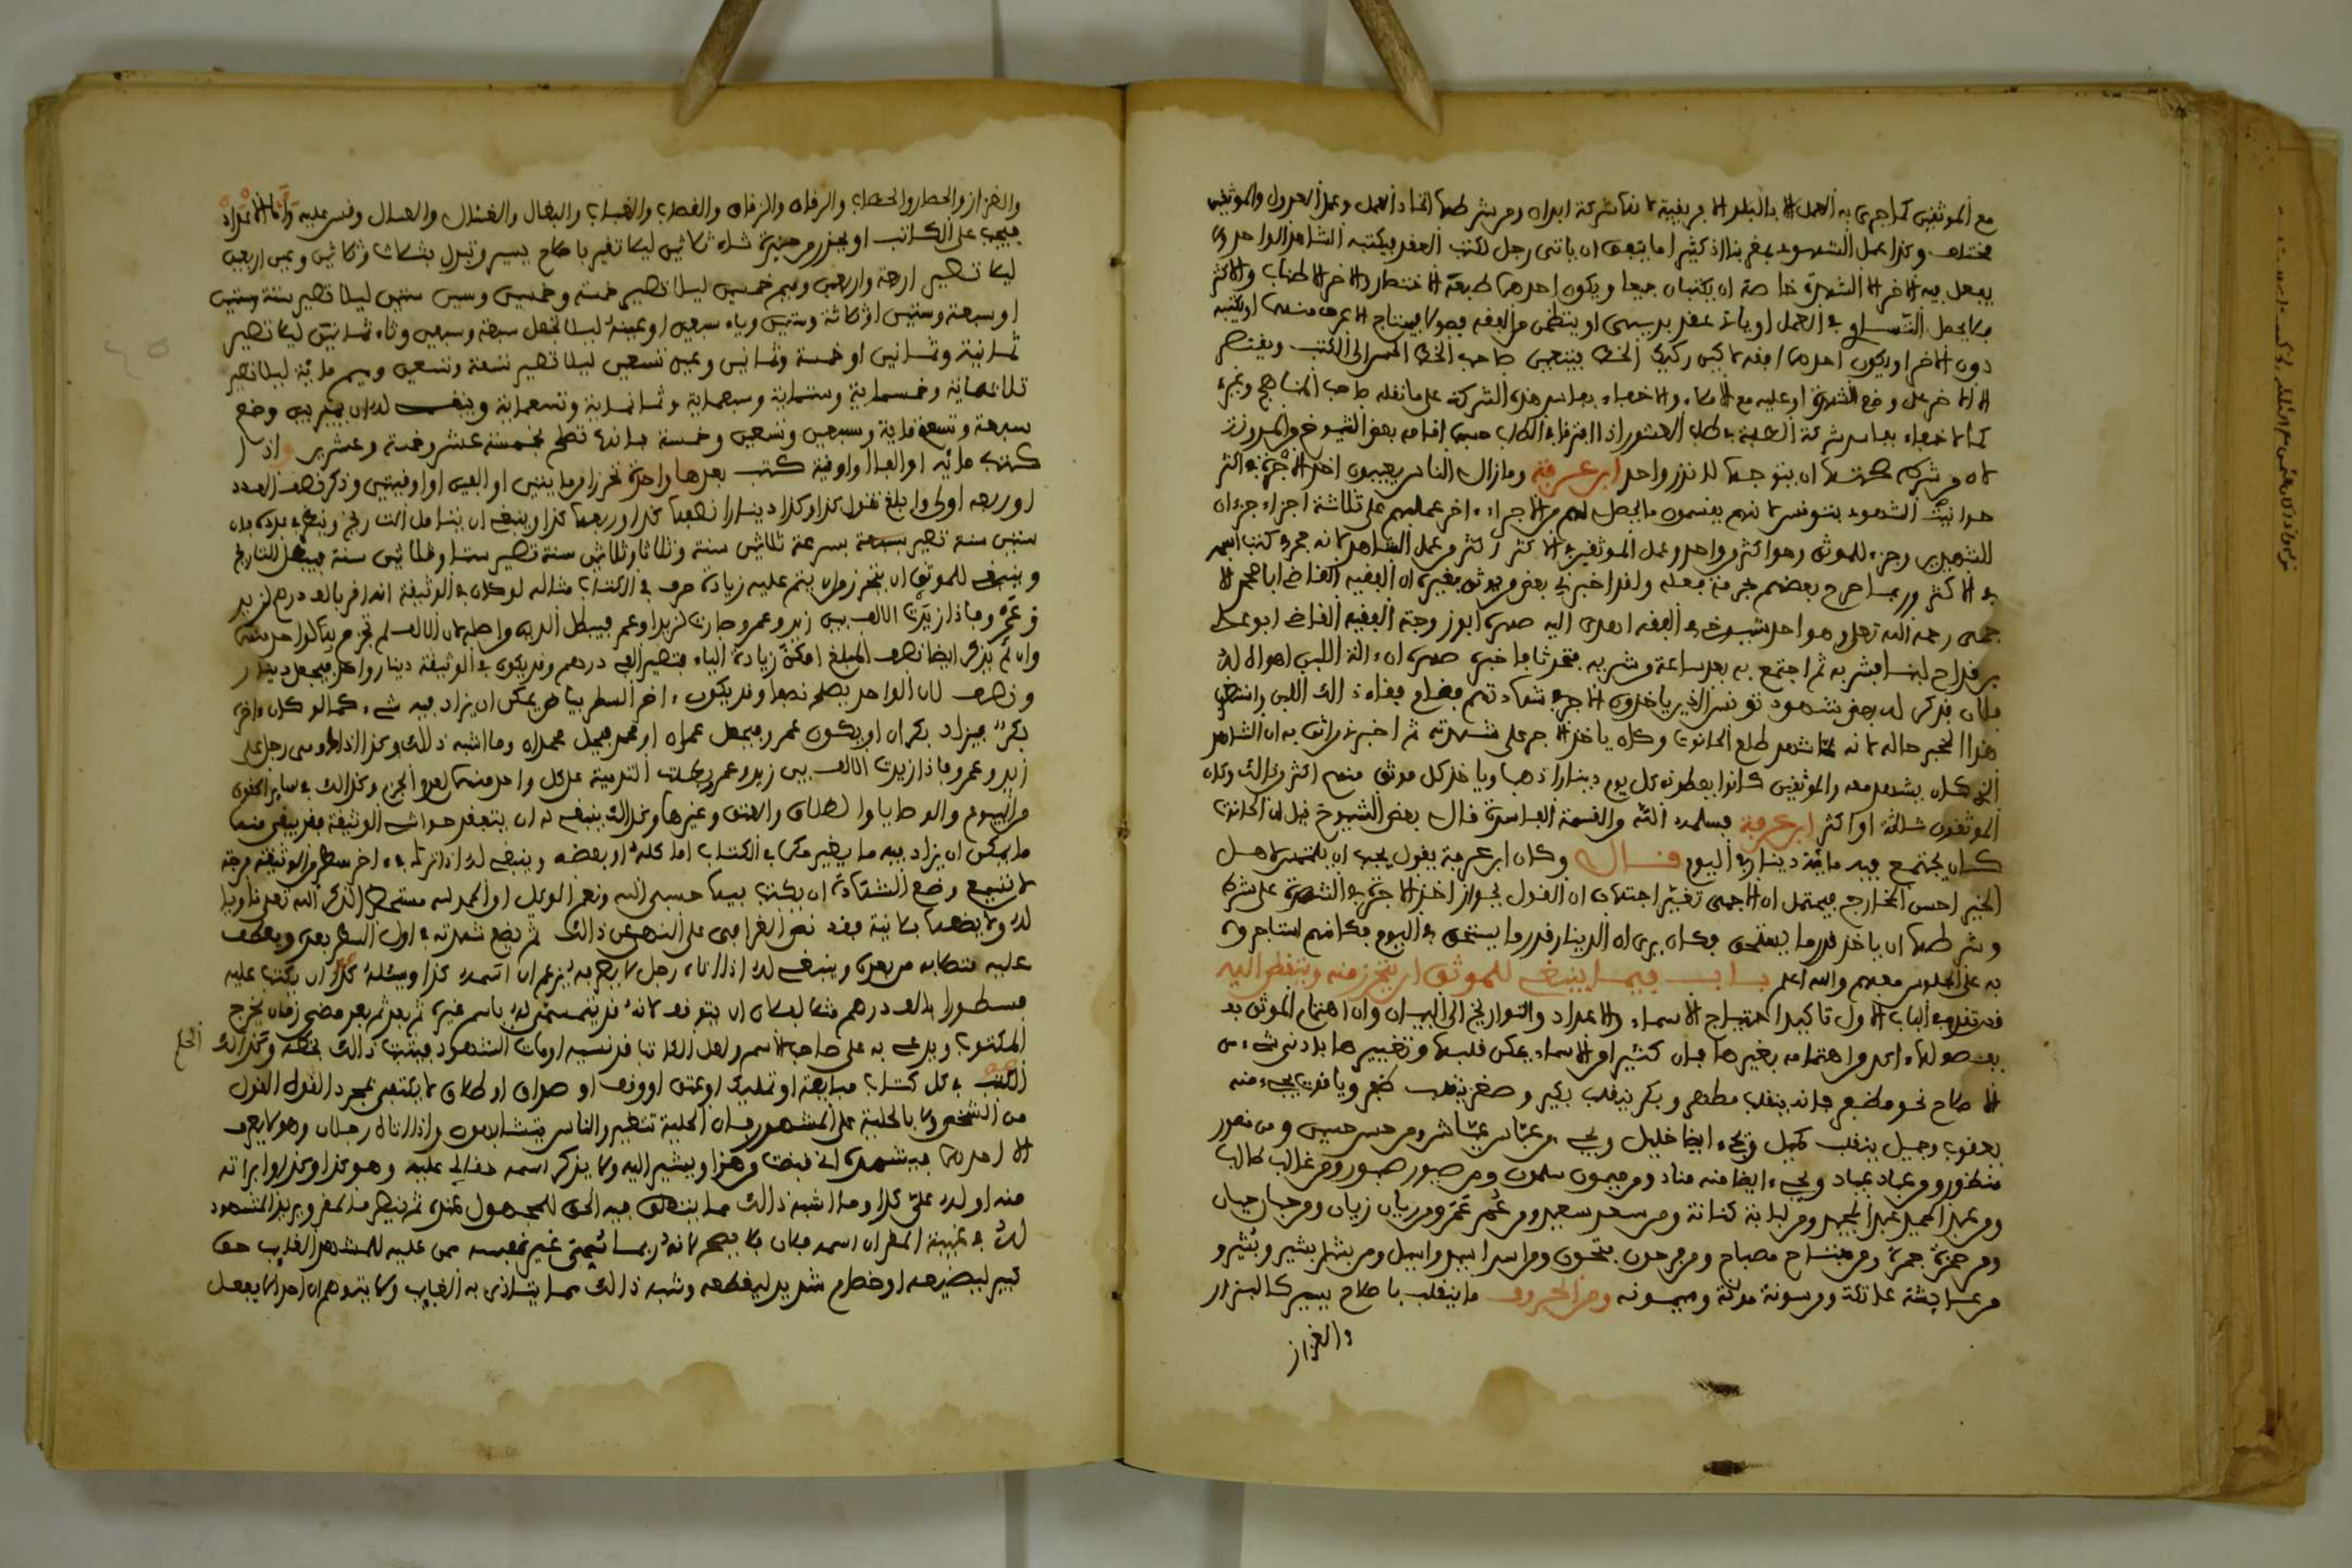 مع الموثقين كما جرى به العمل بالبلاد الافريقية لانها شركة ابدان ومن شرطها اتحاد العمل وعمل العدول والموثقين
مختلف وكذا عمل الشهود بعضهم اذ كثيرا ما يتفق ان ياتى رجل لكتب العقد فيكتبه الشاهد الواحد ولا
يفعل فيه الاخر الا الشهادة خاصة او يكتبان جميعا ويكون احدهما طبعه الاختصار والاخر الاطناب والاكثر
فلا يحصل التساوى في العمل او ياتى عقد بديهى او ينظمن من الفقه فصولا فيحتاج الاعرف منهما او يكتبه
دون الاخر او يكون احدهما افقه لاكن ركيك الخط فينتخبن صاحب الخط الحسن الى الكتب ويقتصر
الاخر على وضع الشهادة او عليه مع الاملاء ولا خفاء بفاسد هذه الشركة على ما نقله صاحب المناهج وغيره
كما لا خفاء بفاسد شركة الطلبة في طلب العشور اذا افترقا في الطلب حسبما افتى به بعض الشيوخ والبرزلي
لان من شركه صحتها ان يتوجها لاندر واحد ابن عرفة وما زال الناس يعيبون اخذ الاجرة في اكثر
حوانيت الشهود بتونس لانهم يقسمون ما يحصل لهم من الاجراء اخر عملهم على ثلاثة اجزاء جزءان
للشهيدين وجزء للموثق وهو اكثر من واحد وعمل الموثقين في الاكثر اكثر من عمل الشاهد لانه مجرد كتب اسمه
في الاكثر وربما صرح بعضهم بحرمة فعله ولقد اخبرني بعض من يوثق بخبره ان الفقيه القاضى ابا محمد الا
جمى رحمه الله تعلى وهو احد شيوخ في الفقه اهدى اليه صهره ابو زوجته الفقيه القاضى ابو علي
بن قداح لبنا فشربه ثم اجتمع به بعد ساعة من شربه فتحدثا فاخبره صهره ان ذلك اللبن اهداه له
فلان فذكر له بعض شهود تونس الذين ياخذون الاجر في شهادتهم فقام فقاء ذلك اللبن وانتظر
هذا المخبر حاله لانه لما شهد طلع الحانوت وكان ياخذ الاجر على شهادته ثم اخبرني من اثق به ان الشاهد
الذي كان يشهد معه والموثقين كانوا يعطونه كل يوم دينارا ذهبا وياخذ كل موثق منهم اكثر من ذلك وكان
الموثقون ثلاثة او اكثر ابن عرفة فسلمه الله والقسمة الفاسدة قال بعض الشيوخ قيل ان الحانوت
كان يجتمع فيه مائة دينار في اليوم قال وكان ابن عرفة يقول يجب ان يلتمس لاهل
الخير احسن المخارج فيحتمل ان الاجمى تغير اجتهاده ان القول بجواز اخذ الاجرة في الشهادة على شرط
وشرطها ان ياخذ قدر ما يستحق وكان يرى ان الدينار قدر ما يستحق في اليوم فكانهم استاجروه
به على الجلوس معهم والله اعلم باب فيما ينبغي للموثق ان يتحرز منه ويتفطن اليه
قد تقدم في الباب الاول تاكيد احتياج الاسماء والاعداد والتواريخ الى البيان وان اهتمام الموثق به
بفصولها اكد من اهتمامه بغيرها فان كثيرا من الاسماء يمكن قلبها وتغييرها بادنى شيء من
الاصلاح نحو مظفر فانه ينقلب مطهر وبكر ينقلب بكير وصغر ينقلب صغير ويافوت يجيء منه
يعقوب وجميل ينقلب كميل ويجيء ايضا خليل ويجيء من عباس عياش ومن حسن حسين ومن منصور
منظور ومن عباد عياد ويجيء ايضا منه مناد ومن ميمون سلمون ومن صبور صبور ومن غالب طالب
ومن عبد الحميد عبد المجيد ومن لبابة كنانة ومن سعد سعيد ومن عمر عمرو ومن ريان زيان ومن جبار حيان
ومن حمزة جمرة ومن مفتاح مصباح ومن فرحون فتحون ومن اسد اسيد واسيل ومن بشر بشير وبشيرو
من عائشة عاتكة ومن سونة مونة وميمونه ومن الحروف ما ينقلب باصلاح يسير كالبزار
والغزاز
والخزاز والحطار والحطاب والرفاه والزفاه والقصاب والغساب والبقال والغسال والعسال وقس عليه واما الاعداد
فيجب على الكاتب او يحذر من حيزة ثلاث ثلاثين ليلا تغير باصلاح يسير وتبدل بثلاث وثلاثين ومن اربعين
ليلا تصير اربعة واربعين وميم خمسين ليلا تصير خمسة وخمسين وسين ستين ليلا تصير ستة وستين
او سبعة وستين او ثلاثة وستين وياء سبعين او عينه ليلا تجعل سبعة وسبعين وثاء ثمانين ليلا تصير
ثمانية وثمانين او خمسة وثمانين وعين تسعين ليلا تصير تسعة وتسعين وميم مائة ليلا تصير
ثلاثمائة وخمسماية وستماية وسبعماية وثمانماية وتسعماية وينبغي له ان يميز بين وضع
سبعة وتسعة ماية وسبعين وتسعين وخمسة فانها تصلح بخمسة عشر وخمسة وعشرين واذا
كتب مائه او الفا او اوقية كتب بعدها واحدة تحرزا من مايتين او الفين او اوقيتين وذكر نصف العدد
او ربعه اولى وابلغ تقول كذا وكذا دينارا نصفها كذا وربعها كذا وينبغي ان يتامل التاريخ ويتحرى بزيادة
ستين سنة تصير بسرعة ثلاثين سنة وثلاثا وثلاثين سنة تصير ستا وثلاثين سنة فيبطل التاريخ
وينبغي للموثق ان يتحرز من ان يتم عليه زيادة حرف في الكتاب مثاله لو كان في الوثيقة انه اقر بالف درهم لزيد
وعمرو فاذا زيدت الالف بين زيد وعمرو صارت لزيد او عمرو فيبطل الدين واصله لان الالف لم تجزم بها لواحد منهما
وان لم يذكر ايضا نصف المبلغ امكن زيادة الياء فتصير الفي درهم وقد يكون في الوثيقة دينار واحد فيجعل دينار
ونصف لان الواحد يصلح نصفا وقد يكون اخر السطر بياض يمكن ان يزاد فيه شيء كما لو كان اخر
بكر فيزاد بكران او يكون عمر فيجعل عمران او محمد فيجعل محمدان وما اشبه ذلك وكذا اذا اوصى رجل على
زيد وعمرو فاذا زيدت الالف بين زيد وعمرو بطلت التوصية على كل واحد منهما لعدم الجزم وكذلك في ساير الحقوق
من البيوع والوصايا والطلاق والعتق وغيرها وكذلك ينبغي له ان يتفقد حواشى الوثيقة فقد يبقى منها
ما يمكن ان يزاد فيه ما يغير حكما في الكتاب اما كله او بعضه وينبغي له اذا ترك في اخر سطر من الوثيقة فرجة
لا تتسع وضع الشهادة ان يكتب فيها حسبى الله ونعم الوكيل او الحمد لله مستحضرا لذكر الله تعلى ناويا
له ولا يضعها بلا نية فقد نص القرافى على النهى عن ذلك ثم يضع شهادته في اول السطر بعده ويعطف
عليه خطابه من بعده وينبغي له اذا اتاه رجل لا يعرفه يزعم ان اسمه كذا ويسئله ان يكتب عليه
مسطورا بالف درهم مثلا لفلان ان يتوقف لانه قد يتسمى له باسم غيره ثم بعد ثم بعد مضي زمان يخرج
المكتوب ويدعى به على صاحب الاسم ولعل الكاتب قد نسيه او مات الشهود فيثبت ذلك بخطه وكذلك الحكم
الكتب في كل كتاب مبايعة او تمليك او عتق او وقف او صداق او طلاق لا يكتفى بمجرد القول القول
من الشخص ولا بالحلية على المشهور فان الحلية تتغير والناس يتشابهون واذا اتاه رجلان وهو لا يعرف
الا احدهما فيشهده انه قبضت وهذا ويشير اليه ولا يذكر اسمه حقا لي عليه وهو كذا وكذا وابراته
منه او له على كذا وما اشبه ذلك مما ينطلق فيه الحق للمجهول عنده ثم يظهر ما لمقر ويريد المشهود
له في غيبة المقر ان اسمه فلان فلا يصح لانه ربما تسمى غير نفسه ممن عليه للمشهد الغايب حق
كبير ليضيعه او خصام شديد ليقطعه وشبه ذلك مما يتاذى به الغايب ولا يتوهم ان احدا لا يفعل